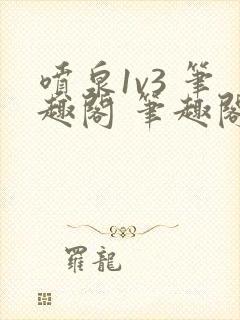 噴泉1v3 筆
趣閣 筆趣閣
羅龍